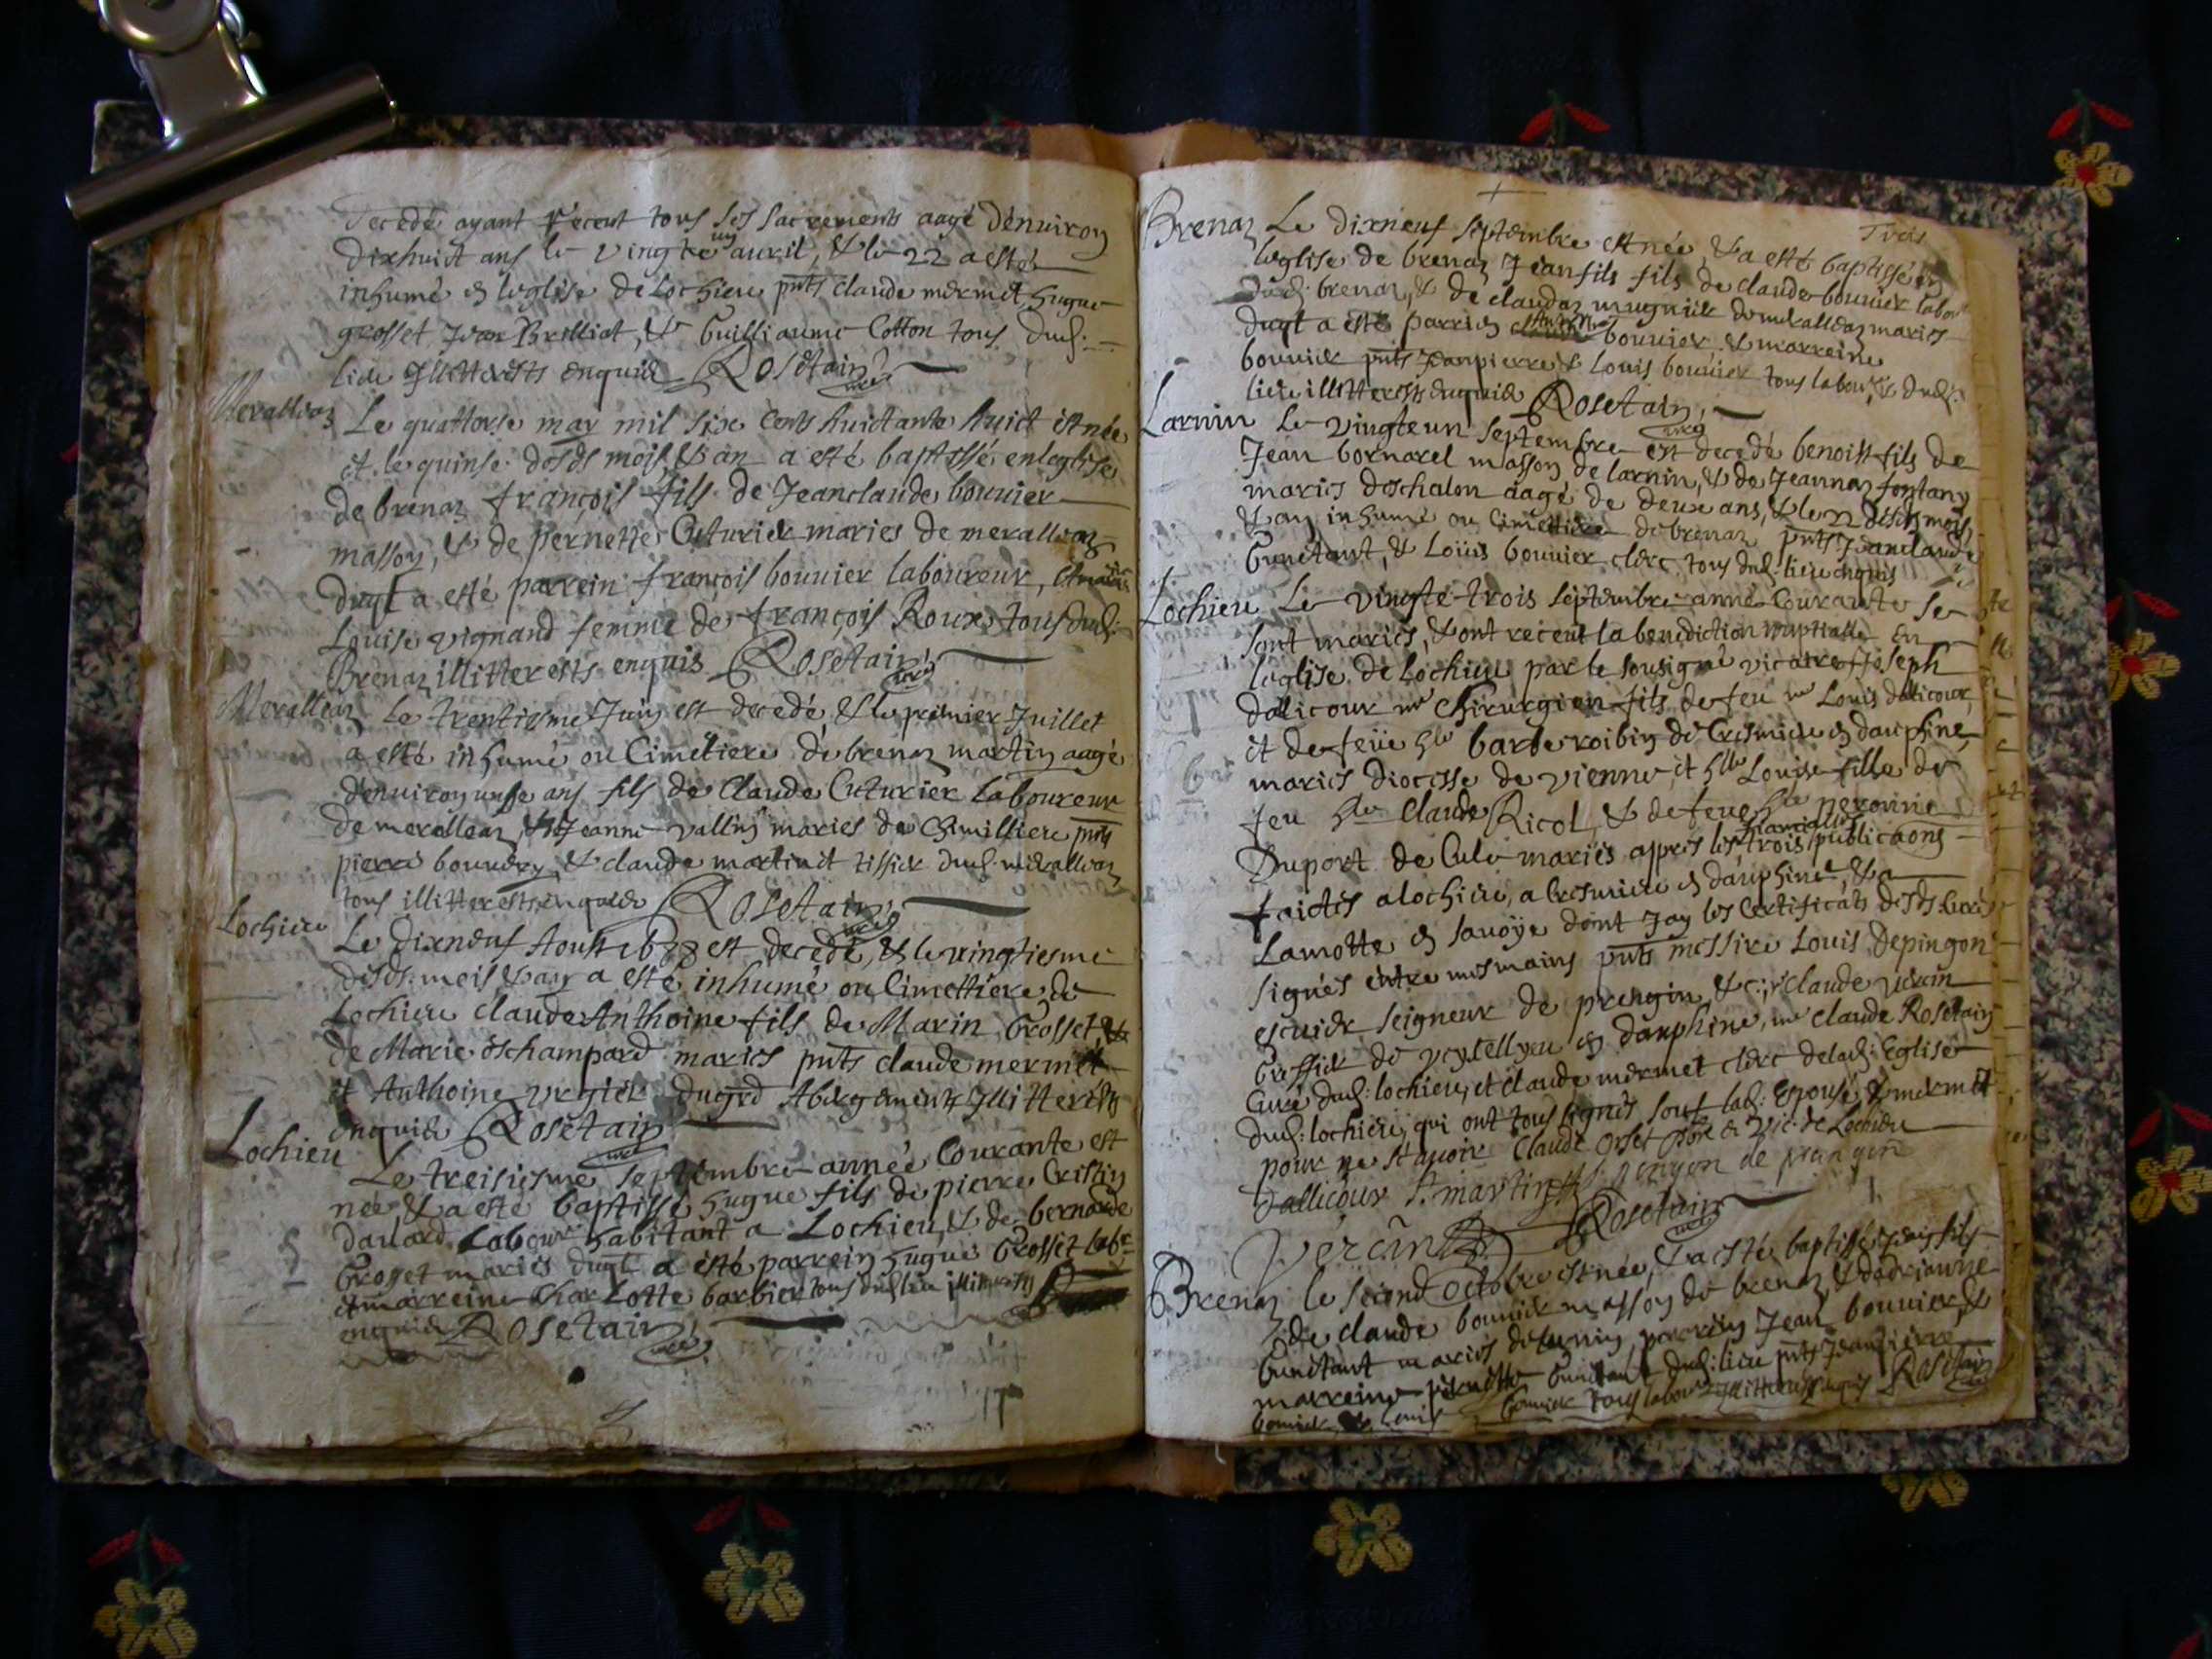 decedé ayant receut tous ses sacrements aagé d'enuiron
dixhuict ans le vingte un auril, & le 22 a esté
inhumé en leglise de Lochieu pnts claude mermet hugue
grosset Jean Brilliat, & Guilliaume Cotton tous dud:
lieu Illitterests enquis Rosetain curé
Meralleaz Le quattorse may mil six cents huictante huict est née
et le quinse desds mois & an a esté baptissé en leglise
de brenaz françois fils de Jeanclaude bouuier
masson, & de pernette Cuturier maries de meralleaz
duql a esté parrein françois bouuier laboureur,
Louise vignand femme de françois Roux tous dud:
Brenaz illitterests enquis Rosetain curé
Meralleaz Le trentiesme Juin est decedé & le premier Juillet
a esté inhumé ou Cimetiere de brenaz martin aagé
d'enuiron unse ans fils de Claude Cuturier Laboureur
de meralleaz, & Jeanne vallin maries de Chmilliere pnts
pierre bouuery, & claude martinet tissier dud: meralleaz
tous illitterests enquis Rosetain curé
Lochieu Le dixneuf Aoust 1688 est decedé, & le vingtiesme
desds: mois & an a esté inhumé ou Cimettiere de
Lochieu claude Anthoine fils de Marin Grosset &
de Marie deschampard maries pnts claude mermet
et Anthoine vrgier dugrd Abergements Illitterests
enquis Rosetain curé
Lochieu Le treisiesme septembre année Courante est
née, & a esté baptissé hugue fils de pierre Cristin
dauard Labour habitant a Lochieu, & de bernarde
Grosset maries duql a esté parrein hugue Grosset labr
et marreine charlotte barbier tous dud lieu illitterests
enquis Rosetain curé
17
Trois
Brenaz Le dixneuf septembre est née, & a esté baptissé en
leglise de brenaz Jean fils fils de claude bouuier labor
dud: brenaz, & de claudaz mugnier de meralleaz maries
duql a esté parrien bouuier & marreine
bouuier pnts Jeanpierre & Louis bouuier tous labour, & dud:
lieu illitterests enquis Rosetain curé
Larnin Le vingteun septembre est decedé benoist fils de
Jean bornarel masson de larnin, & de Jeannaz fontany
maries deschalon aagé de deux ans, & le 22 desds mois,
& an inhumé ou Cimettiere de brenaz pnts Jeanclaude
Gunetant, & Loüis bouuier clerc tous dud: lieu enquis
Lochieu Le vingte trois septembre année Courante se
sont maries, & ont receut la benediction nuptialle en
leglise de Lochieu par le sousigné vicaire Joseph
dalicour mr chirurgien fils de feu mr Louis dallicour,
et de feüe hle barbe roibin de Cresmieu en dauphine,
maries diocesse de vienne, et hlle Louise fille de
feu Claude Ricol, & de feue peronne
Duport de Culo maries appres les trois publications
fiancialles
faictes a lochieu, a Cresmieu en dauphiné, & a
Lamotte en sauoÿe dont Jay les Certificats desds Curés
signés entre mes mains pnts messire Louis depingon
escuier seigneur de prengin &c; claude verain
Greffier de en dauphine, mr claude Rosetain
Curé dud: lochieu, et claude mermet clerc delad: Eglise
dud: lochieu, qui ont tous signés sauf lad: Espouse, & mermet
pour ne scauoir Claude Orset vic: de Lochieu
dallicour St. martin pingon de prangin
Verain Rosetain curé
Brenaz le second octobre est née, & a esté baptissé Jean fils
de claude bouuier masson de brenaz, & dadrianne
Gunetant maries parrein Jean bouuier, &
marreine pernette Gunetant dud: lieu pnts Jeanpierre
bouuier & Louis bouuier tous labour Illitterests enquis Rosetain